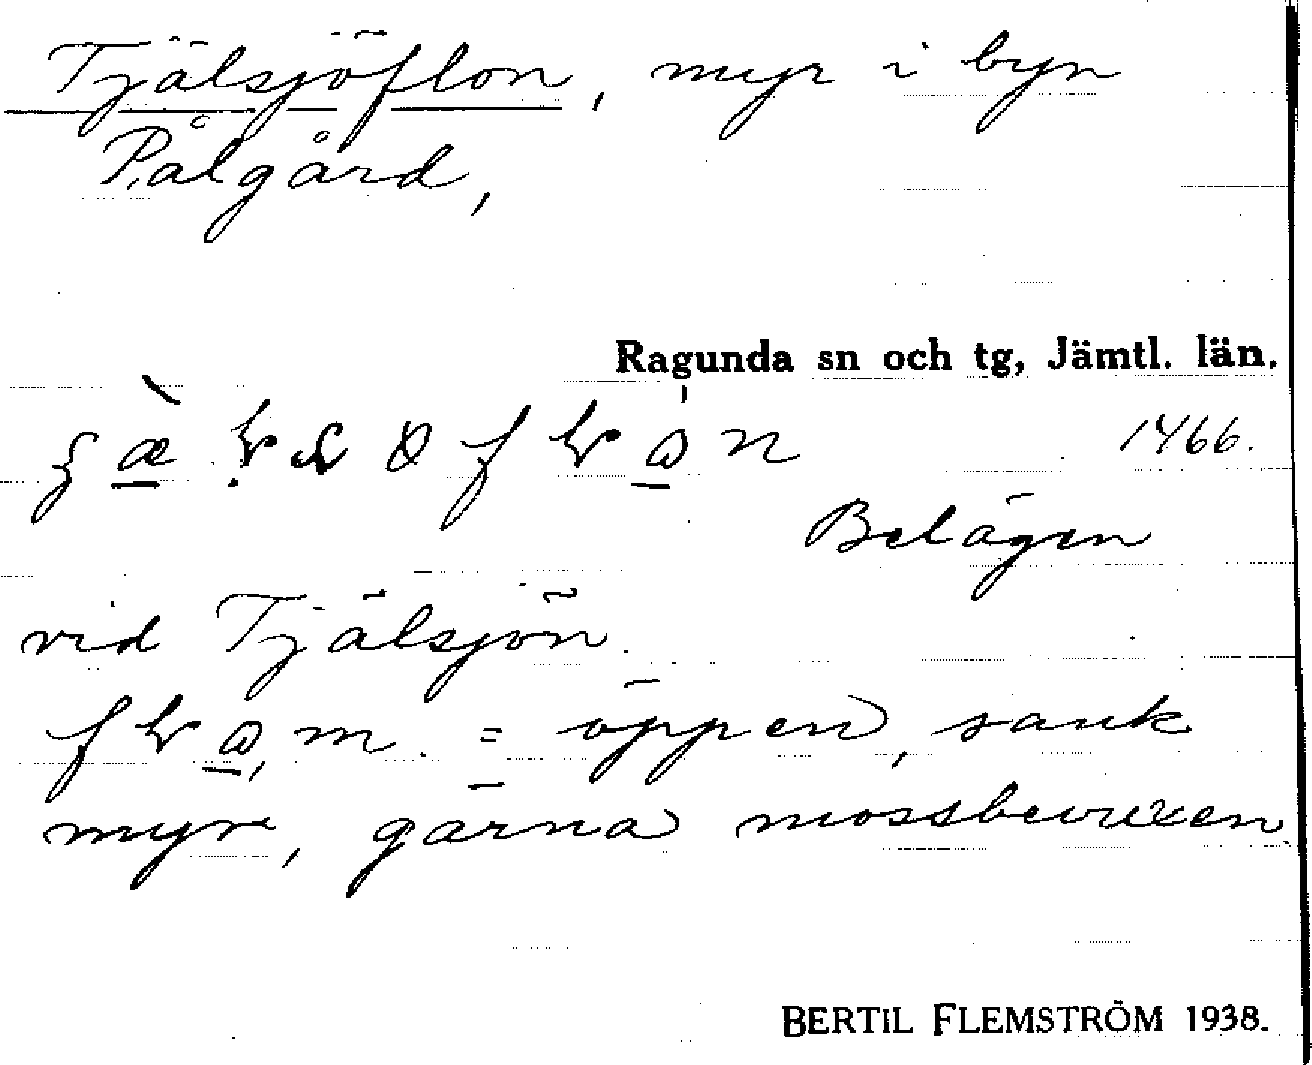 Tjälsjöflon, myr i byn
Pålgård,
Ragunda sn och tg, Jämtl. län.
1466.
Belägen
vid Tjälsjön.
m. = öppen, sank
myr, gärna mossbevuxen.
BERTIL FLEMSTRÖM 1938.